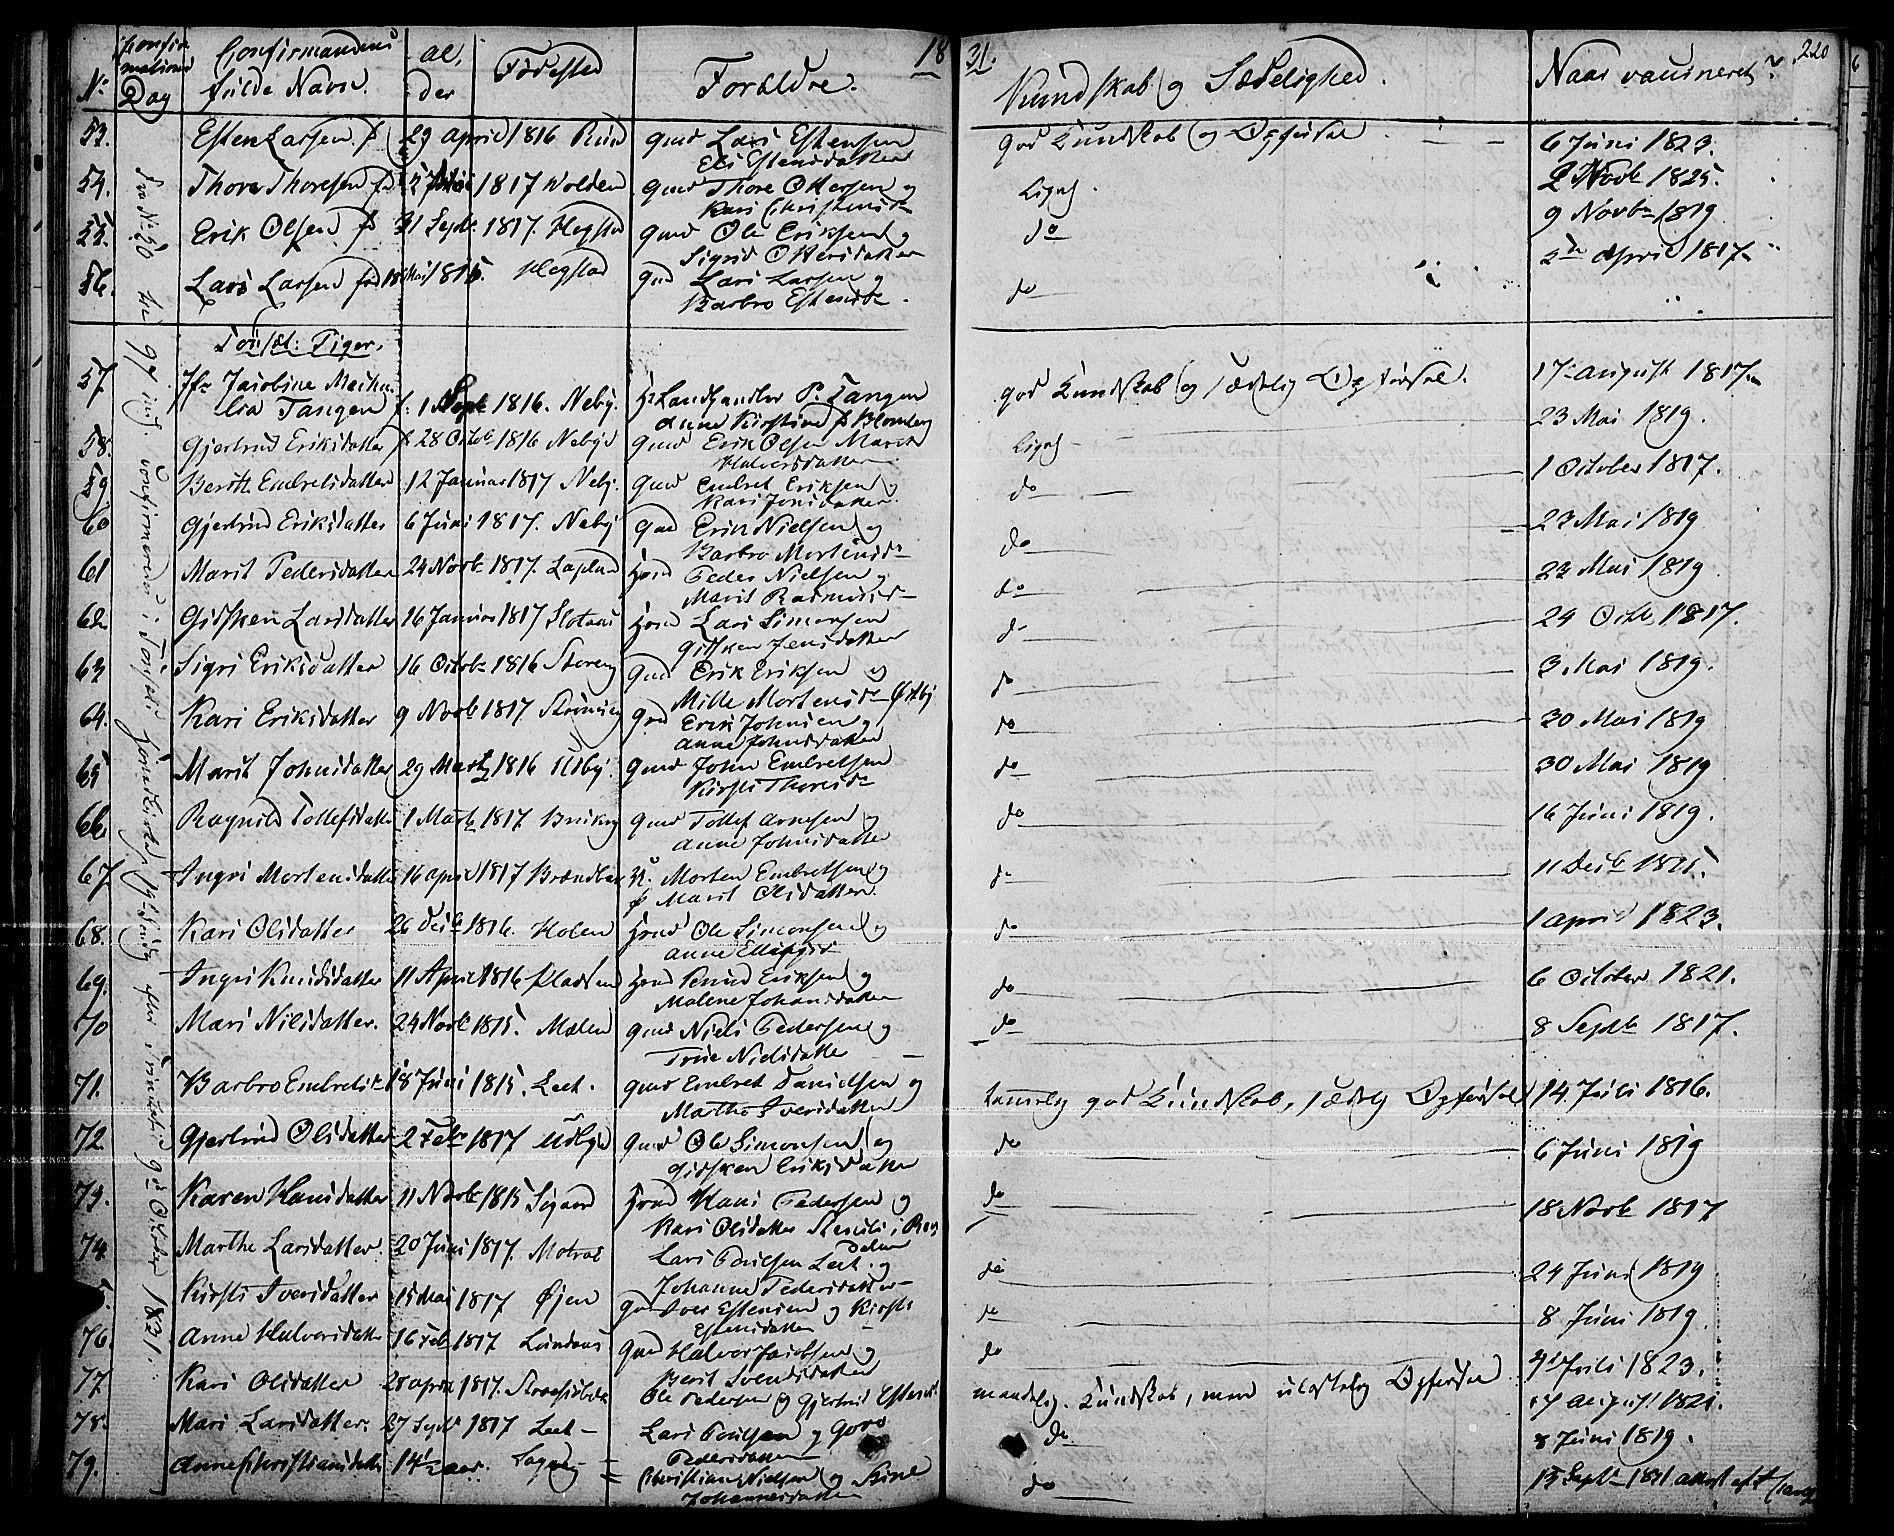 18 31. 220
No Konfirmations Dag Confirmandens fulde Navn. Alder Fødested Forældre. Kundskab og Sædelighed. Naar vaccineret?
53. Esten Larsen f 29 april 1816 Gmd Lars Estensen god Kundskab og Opførsel 6 Juni 1823.
Eli Estensdatter
54. Thore Thoresen fd 1817 Volden Gmd Thore Ottersen og Ligesaa 2 Novb 1825.
Kari Christensd
55. Erik Olsen fd 31 Septr 1817. Hegstad Gmd Ole Eriksen og do 9 Novbr 1819
Sigrid Ottersdatter
56. Lars Larsen fød 18 Mai 1815. Hegstad Gmd Lars Larsen og do 5te April 1817
Barbro Estensdr.
Tønset: Piger.
57 Jfr Jacobine Mathilia Tangen f: 1 Sept 1816. Neby. Hr Landhandler P. Tangen god Kundskab og sædelig Opførsel. 17 august 1817.
Anne Kirstine f Blomberg
58. Gjertrud Eriksdatter f 28 Octbr 1816 Nebye Gmd Erik Olsen Marit Ligesaa 23 Mai 1819.
Halvorsdatter
59 Berith Embretsdatter 12 Januar 1817 Neby. Gmd Embret Eriksen og do 1 October 1817.
Kari Jonsdatter
60 Gjertrud Eriksdatter 6 Juni 1817. Neby Gmd Erik Nielsen og do 23 Mai 1819
Barbro Mortensdr
61 Marit Pedersdatter 24 Novbr 1817. Husmd Peder Nielsen og do 23 Mai 1819
Marit Rasmusd
62 Gidsken Larsdatter 16 Januar 1817 Husmd Lars Simensen do 24 Octb. 1817.
Gidsken Jensdatter
63 Sigri Eriksdatter 16 Octobr 1816 Storeng Gmd Erik Eriksen og do 3 Mai 1819.
Mille Mortensdr Østby
64. Kari Eriksdatter 9 Novb 1817 Gmd Erik Johnsen og do 30 Mai 1819
Anne Johnsdatter
65 Marit Johnsdatter 29 Marts 1816 Gmd John Embretsen do 30 Mai 1819
Kirsti Thoresdr
66. Ragnild Tollefsdatter 1 Marts 1817 Gmd Tollef Arnesen og do 16 Juni 1819.
Anne Johnsdatter
67. Ingri Mortensdatter 16 april 1817 Morten Embretsen og do 11 Decb 1815.
Marit Olsdatter
68. Kari Olsdatter 26 Decb 1816. Holen Husmd Ole Simonsen og do 1 april 1823.
Anne
69. Ingri Knudsdatter 11 April 1816 Pladsen Husmd Knud Eriksen og do 6 October 1821.
Malene Johansdatter
70 Mari Nilsdatter. 24 Novb 1815. Mælen Gmd Niels Pedersen og do 8 Septbr 1817.
Trine Nielsdatter
71. Barbro Embretsdr 18 Juni 1815. Leet. Gmd Embret Danielsen og temmelig god Kundskab, sædelig Opførsel 14. Juli 1816.
Marthe Iversdatter
72 Gjertrud Olsdatter 2 Febr 1817 Udbye Gmd Ole Simonsen og do 6 Juni 1819
Gidsken Eriksdatter
73. Karen Hansdatter 11 Novb 1815 Husmd Hans Pedersen og do 18 Novb 1817
Kari Olsdatter
74. Marthe Larsdatter. 20 Juni 1817. Motrøe Lars Poulsen Leet og do 24 Juni 1819
Johanne Pedersdatter
Kirsti Iversdatter 15 Mai 1817 Øjen Gmd Iver Estensen og Kirsti do 8 Juni 1819
Estensdatter
76. Anne Halvorsdatter 16 Feb 1817 Gmd Halvor Jacobsen og do Juli 1823.
Berit Svendsdatter
77. Kari Olsdatter 20 april 1817. Ole Pedersen og Gjertrud Estensd. maadelig Kundskab, men ulastelig Opførsel 17 August 1821.
78. Mari Larsdatter. 27 Septr 1817 Leet Lars Poulsen og Goro do 8 Juni 1819.
Pedersdatter
79. Anne Christiansdatter 14½ aar. Christian Nielsen og Stine do 15 Septr 1831
Johannesdatter
Fra No 20 til 97 incl. confirmerede i Tønset Hovedkirke, 19de Søndag efter Trinitatis 9de October 1831.